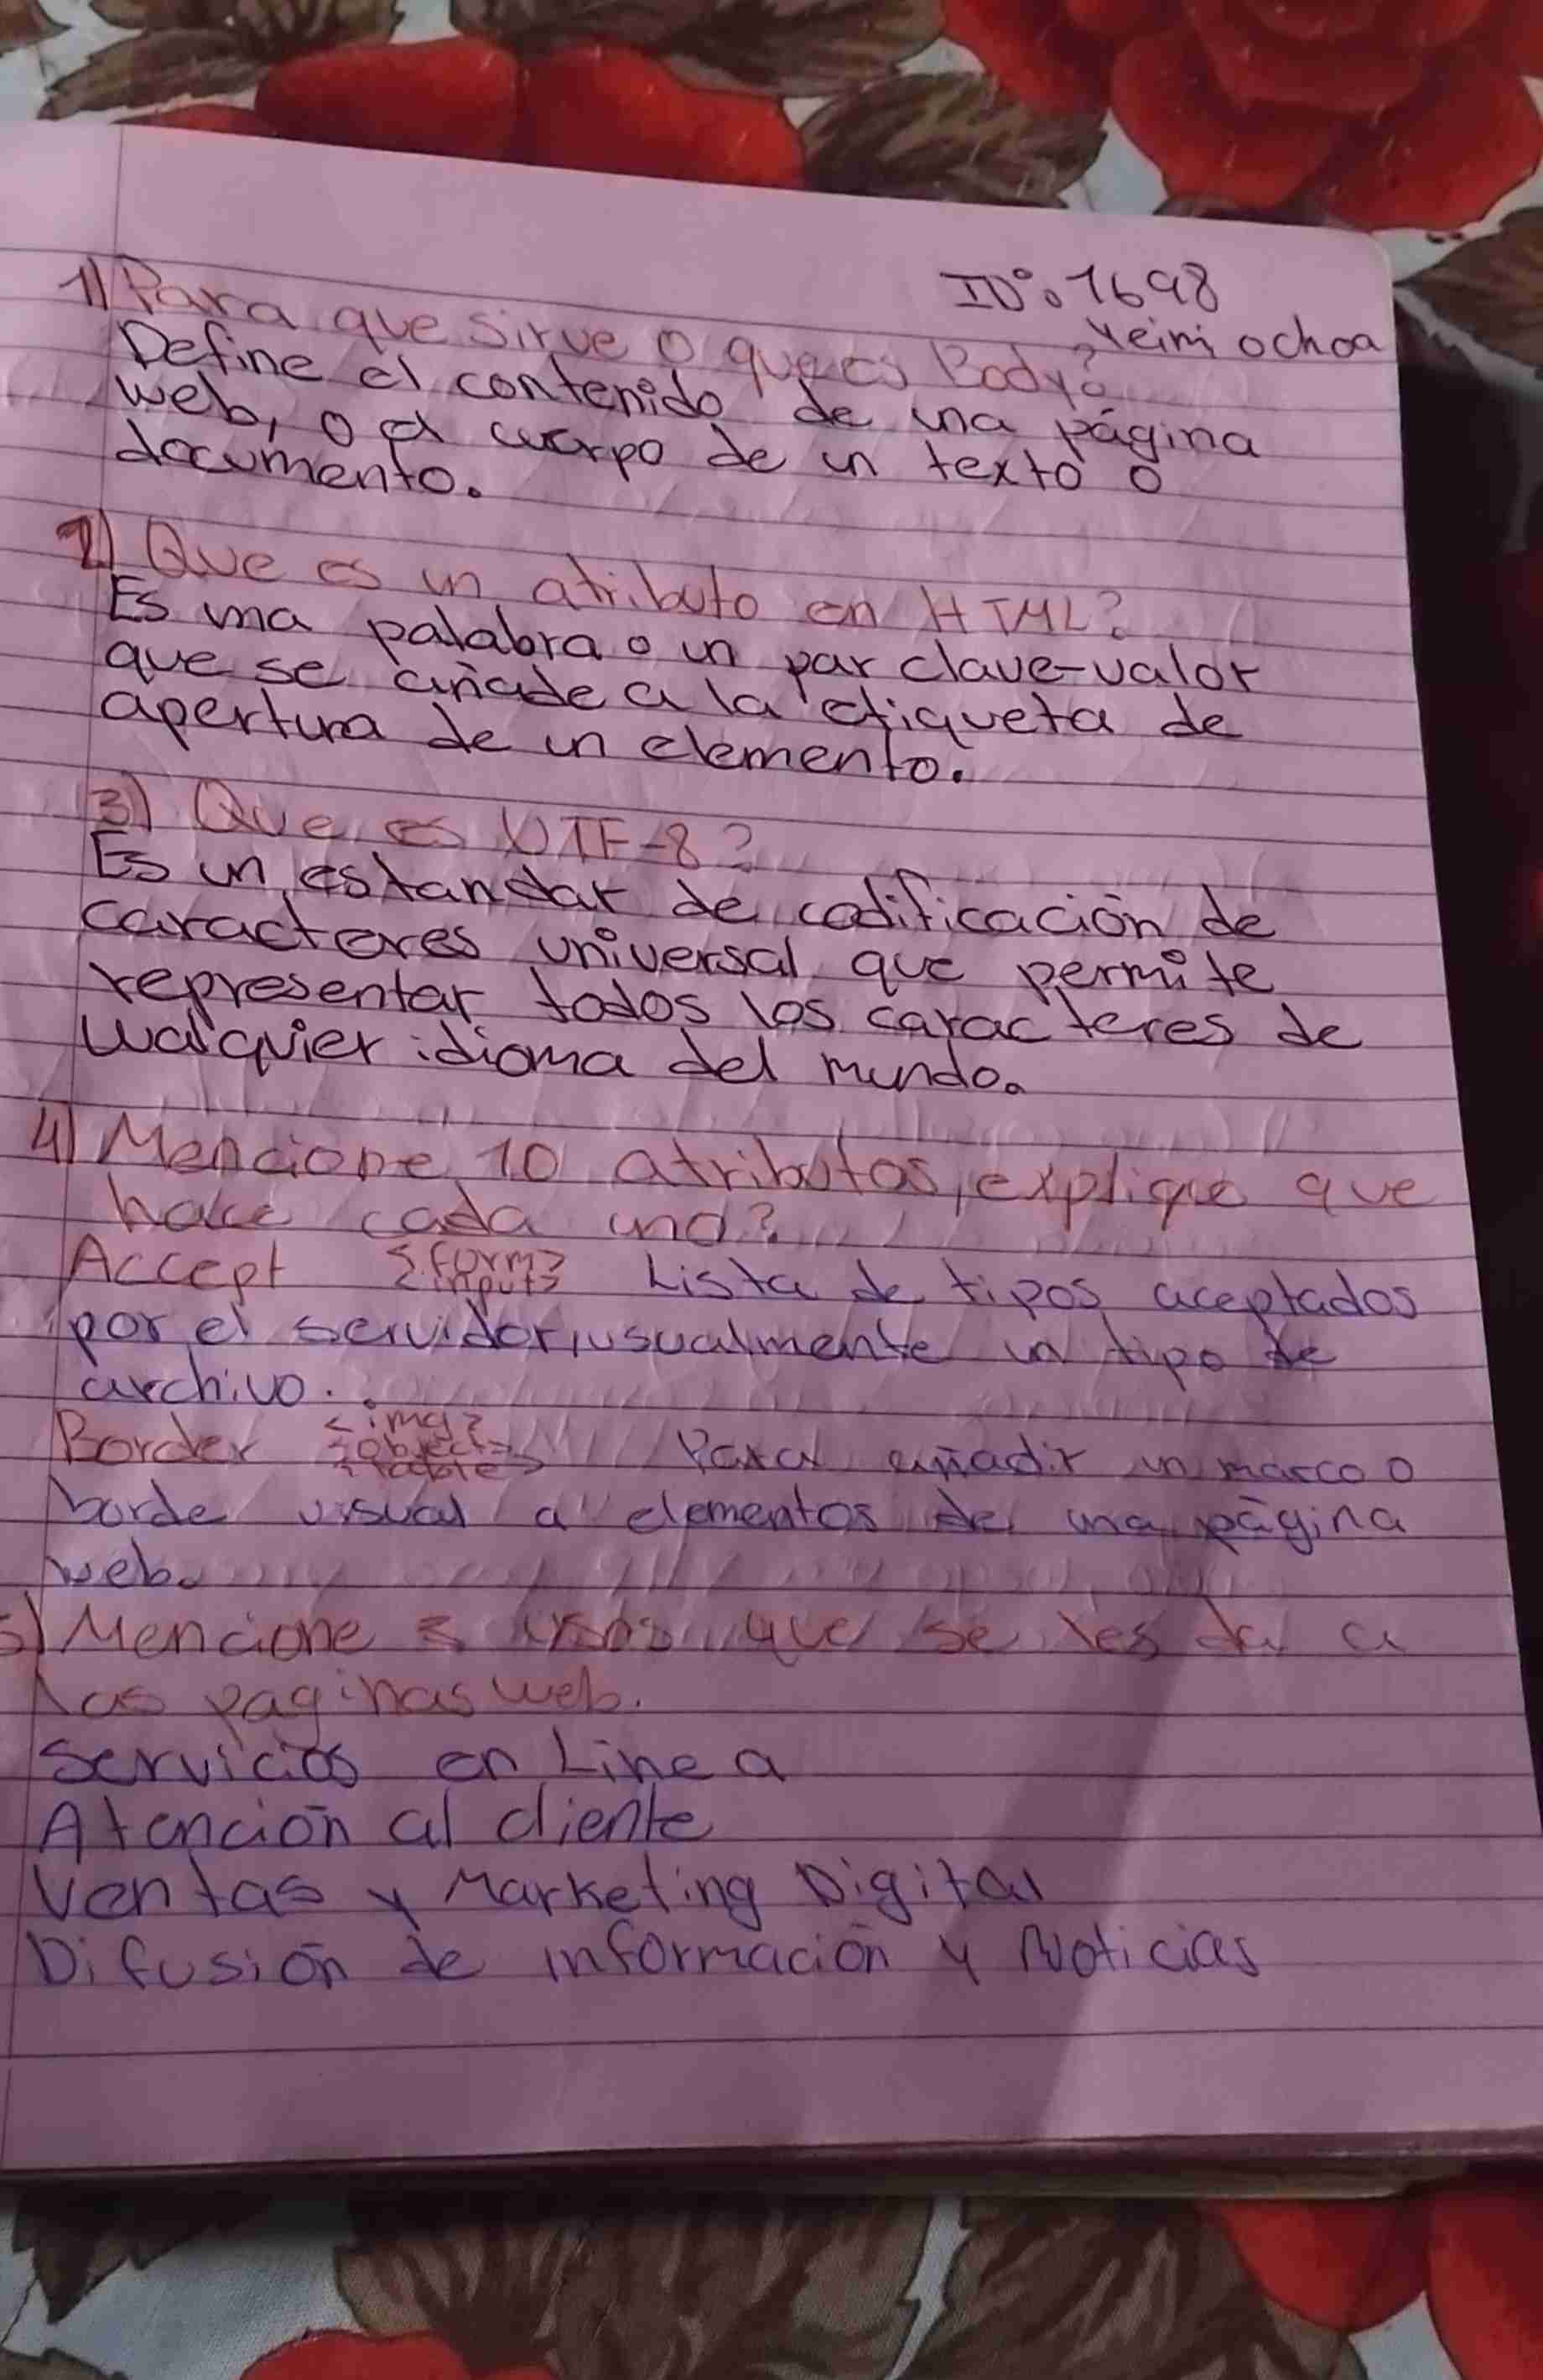 ID: 1698
Yeimi ochoa
1) Para que sirve o que es Body?
Define el contenido de una página
web, o el cuerpo de un texto o
documento.
2) Que es un atributo en HTML?
Es una palabra o un par clave-valor
que se añade a la etiqueta de
apertura de un elemento.
3) Que es UTF-8?
Es un estandar de codificación de
caracteres universal que permite
representar todos los caracteres de
cualquier idioma del mundo.
4) Mencione 10 atributos, explique que
hace cada uno?
Accept <form> <input> Lista de tipos aceptados
por el servidor, usualmente un tipo de
archivo.
Border <img> <object> <table> Para añadir un marco o
borde visual a elementos de una página
web.
5) Mencione 3 usos que se les da a
las paginas web.
Servicios en Linea
Atención al cliente
Ventas y Marketing Digital
Difusión de información y Noticias